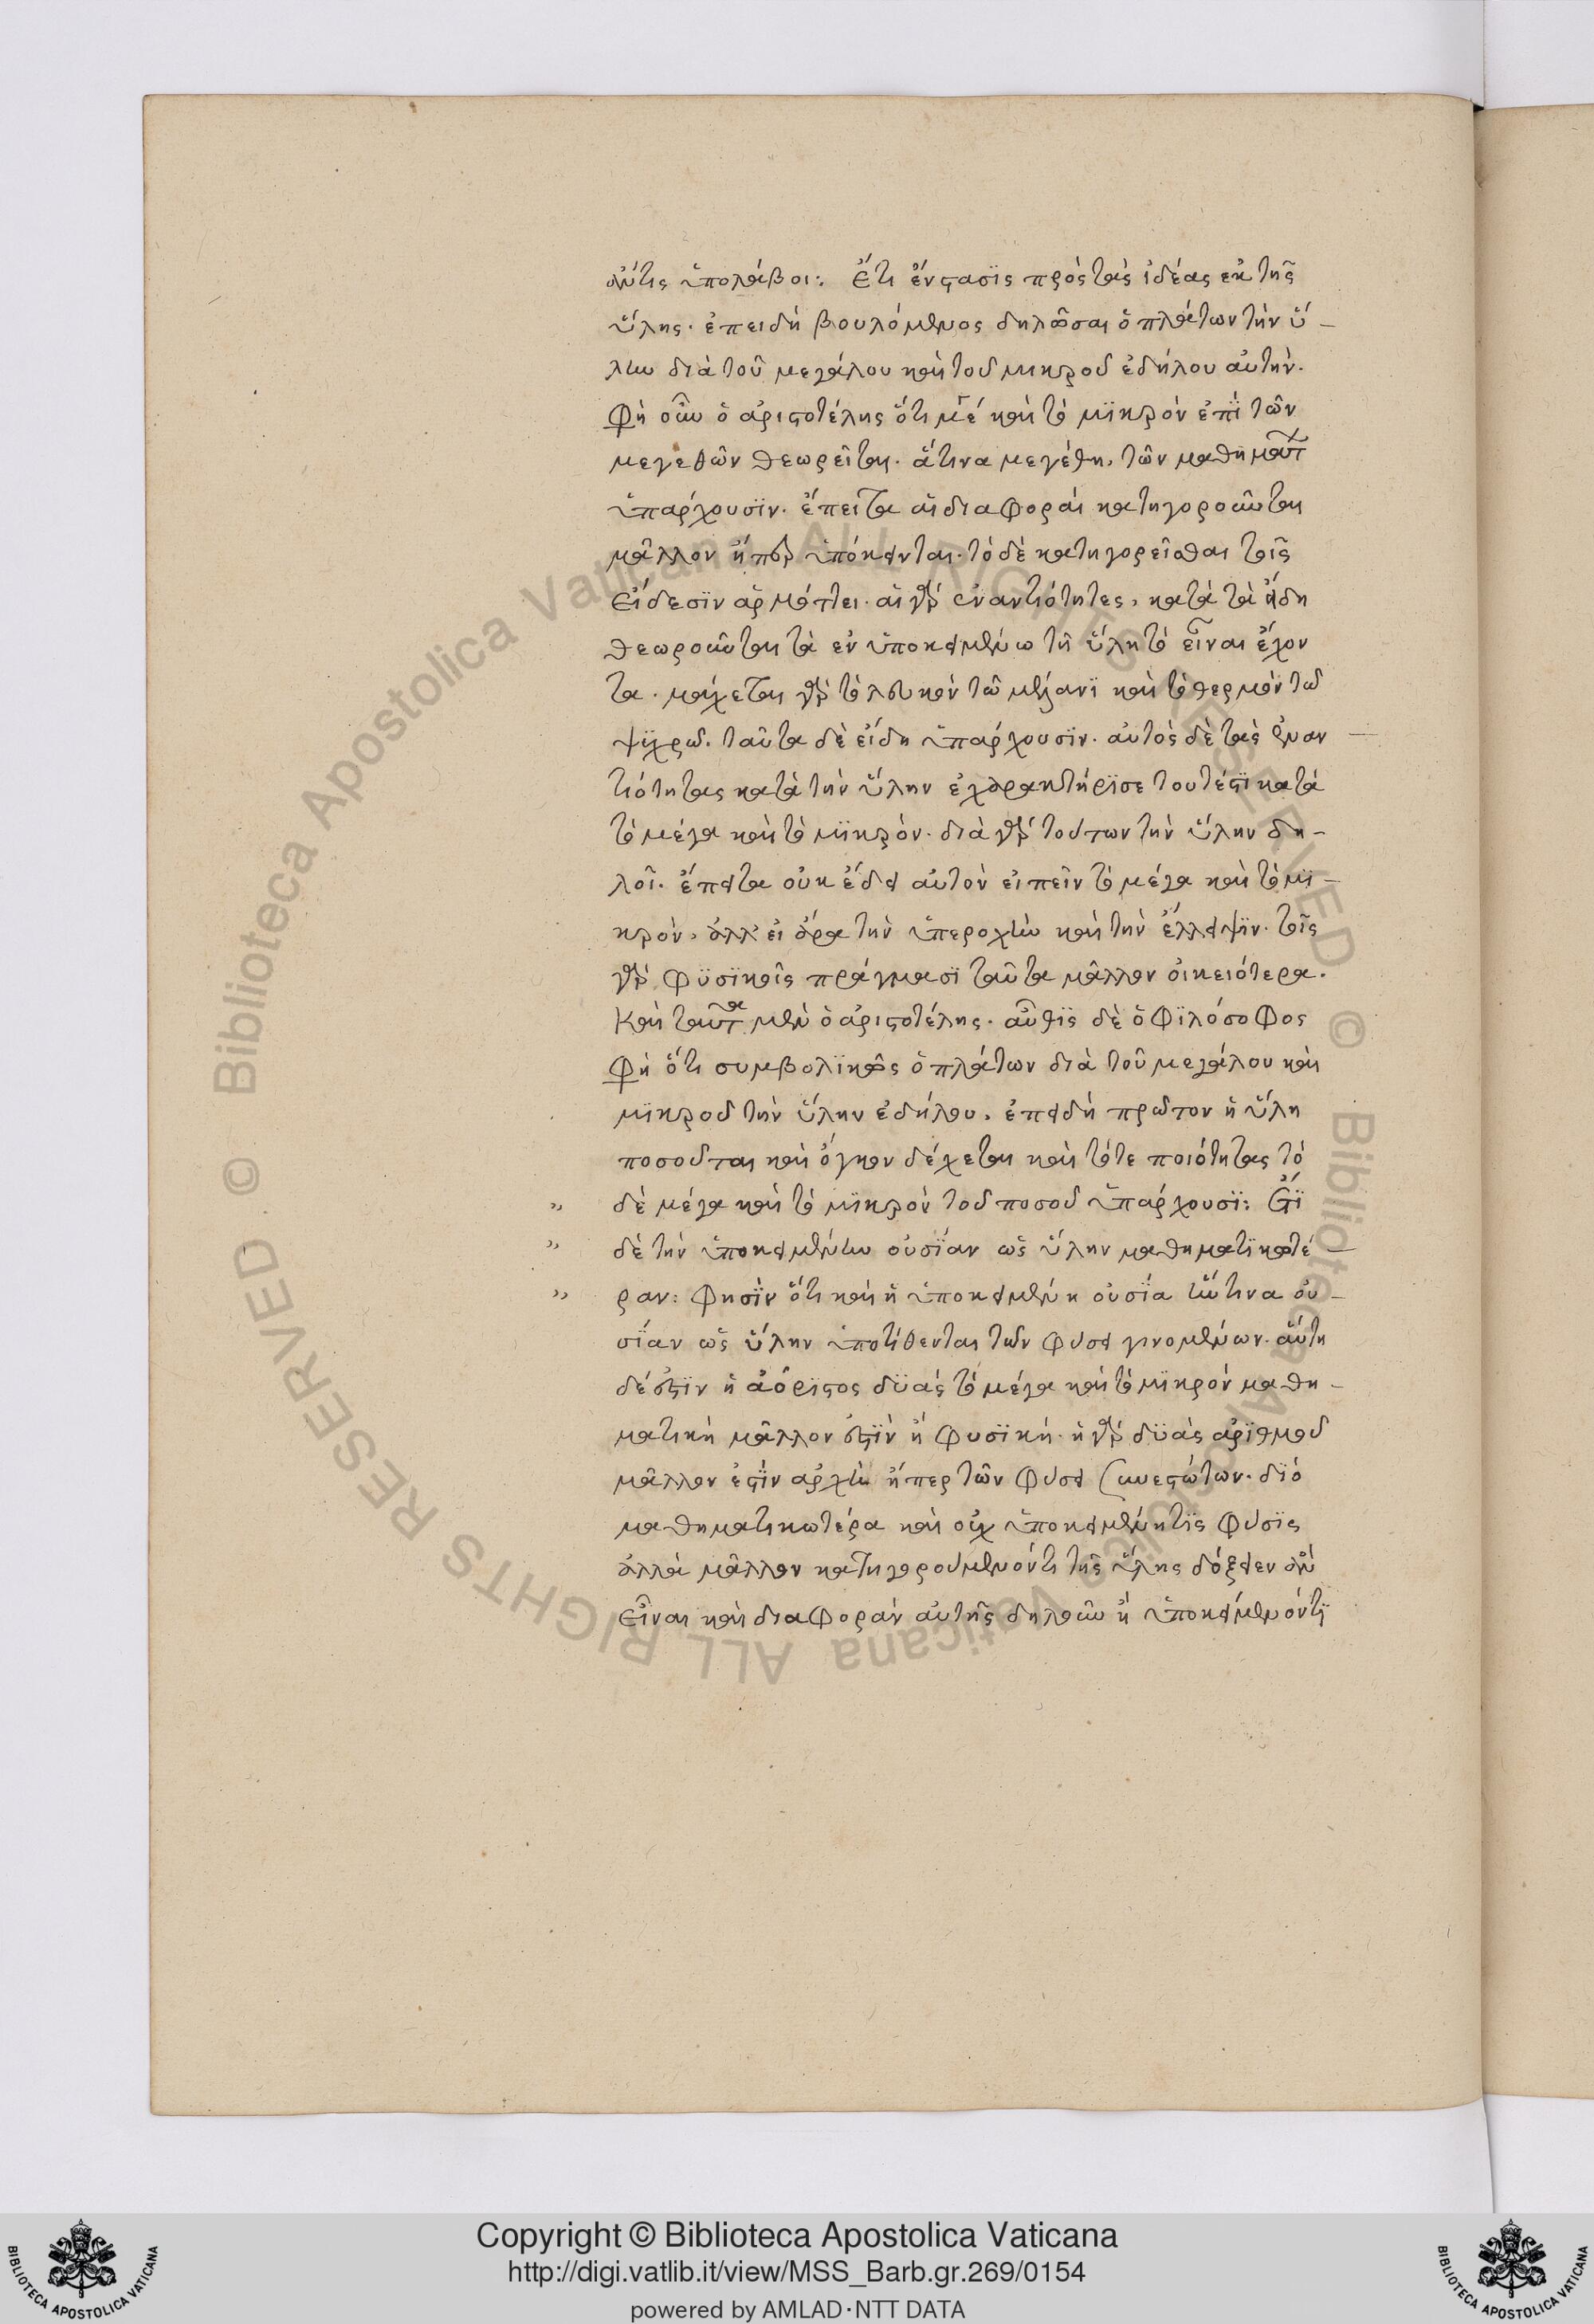 ἄν τις ὑπολάβοι: Ἔτι ἔνστασϊς πρὸς τὰς ἰδέας ἐκ τῆς
ὕλης· ἐπειδὴ βουλόμενος δηλῶσαι ὁ πλάτων τὴν ὕ–
λην διὰ τοῦ μεγάλου καὶ τοῦ μικροῦ ἐδήλου αὐτήν.
Φη οὖν ὁ ἀριστοτέλης ὅτι μέ καὶ τὸ μϊκρὸν ἐπῒ τῶν
μεγεθῶν θεωρεῖται. ἅτινα μεγέθη, τῶν μαθημάτ
ὑπάρχουσϊν. ἔπειτα αἱ διαφοραὶ κατηγοροῦνται
μᾶλλον ἤπερ ὑπόκεινται. τὸ δὲ κατηγορεῖσθαι τοῖς
εἴδεσϊν ἁρμόττει. αἱ γὰρ ἐναντιότητες, κατὰ τὰ ἤδη
θεωροῦνται τὰ ἐν ὑποκειμένω τῆ ὕλη τὸ εἶναι ἔχον
τα. μάχεται γὰρ τὸ λευκὸν τῶ μέλανϊ καὶ τὸ θερμὸν τῶ
ψϋχρῶ. ταῦτα δὲ εἴδη ὑπάρχουσϊν. αὐτὸς δὲ τὰς ἐναν –
τιότητας κατὰ τὴν ὕλην ἐχαρακτήρϊσε τουτέστϊ κατὰ
τὸ μέγα καὶ τὸ μϊκρόν. διὰ γὰρ τούτων τὴν ὕλην δη–
λοῖ. ἔπειτα οὐκ ἔδει αὐτὸν εἰπεῖν τὸ μέγα καὶ τὸ μϊ–
κρὸν, ἀλλ' εἰ ἄρα τὴν ὑπεροχὴν καὶ τὴν ἔλλειψϊν. τοῖς
γὰρ φϋσϊκοῖς πράγμασϊ ταῦτα μᾶλλον οἰκειότερα.
Καὶ ταῦτα μὲν ὁ ἀριστοτέλης. αὖθϊς δὲ ὁ φϊλόσοφος
Φη ὅτι συμβολϊκῶς ὁ πλάτων διὰ τοῦ μεγάλου καὶ
μϊκροῦ τὴν ὕλην ἐδήλου, ἐπειδὴ πρῶτον ἡ ὕλη
ποσοῦται καὶ ὄγκον δέχεται καὶ τότε ποιότητας τὸ
„ δὲ μέγα καὶ τὸ μϊκρὸν τοῦ ποσοῦ ὑπάρχουσϊ: Ἔτϊ
„ δὲ τὴν ὑποκειμένην οὐσΐαν ὡς ὕλην μαθηματϊκωτέ–
„ ραν: Φησῒν ὅτι καὶ ἡ ὑποκειμένη οὐσΐα ἥντινα οὐ–
σΐαν ὡς ὕλην ὑποτίθενται τῶν φύσει γινομένων. αὕτη
δέ ἐστϊν ἡ ἀόρϊστος δϋὰς τὸ μέγα καὶ τὸ μϊκρὸν μαθη–
ματικὴ μᾶλλον ἐστῒν ἢ φυσϊκή. ἡ γὰρ δϋὰς ἀρϊθμοῦ
μᾶλλον ἐστῒν ἀρχὴ ἤπερ τῶν φύσει συνεστώτων. δϊὸ
μαθηματικωτέρα καὶ οὐχ ὑποκειμένη τϊς φύσϊς
ἀλλὰ μᾶλλον κατηγορούμενόν τι τῆς ὕλης δόξειεν ἂν
εἶναι καὶ διαφορὰν αὐτῆς δηλοῦν ἢ ὑποκείμενόν τϊ
Copyright © Biblioteca Apostolica Vaticana
http://digi.vatlib.it/view/MSS_Barb.gr.269/0154
powered by AMLAD·NTT DATA